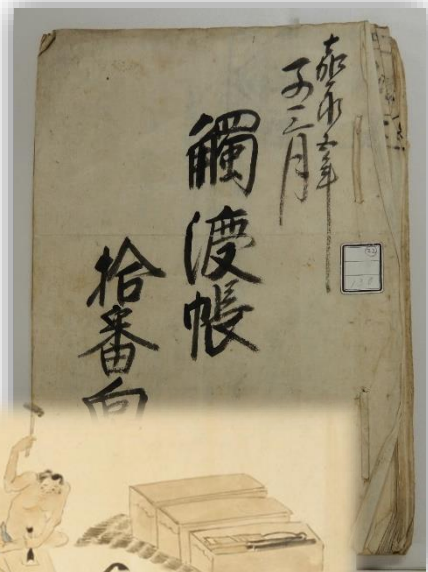 嘉永五年
子三月
觸渡帳
拾番